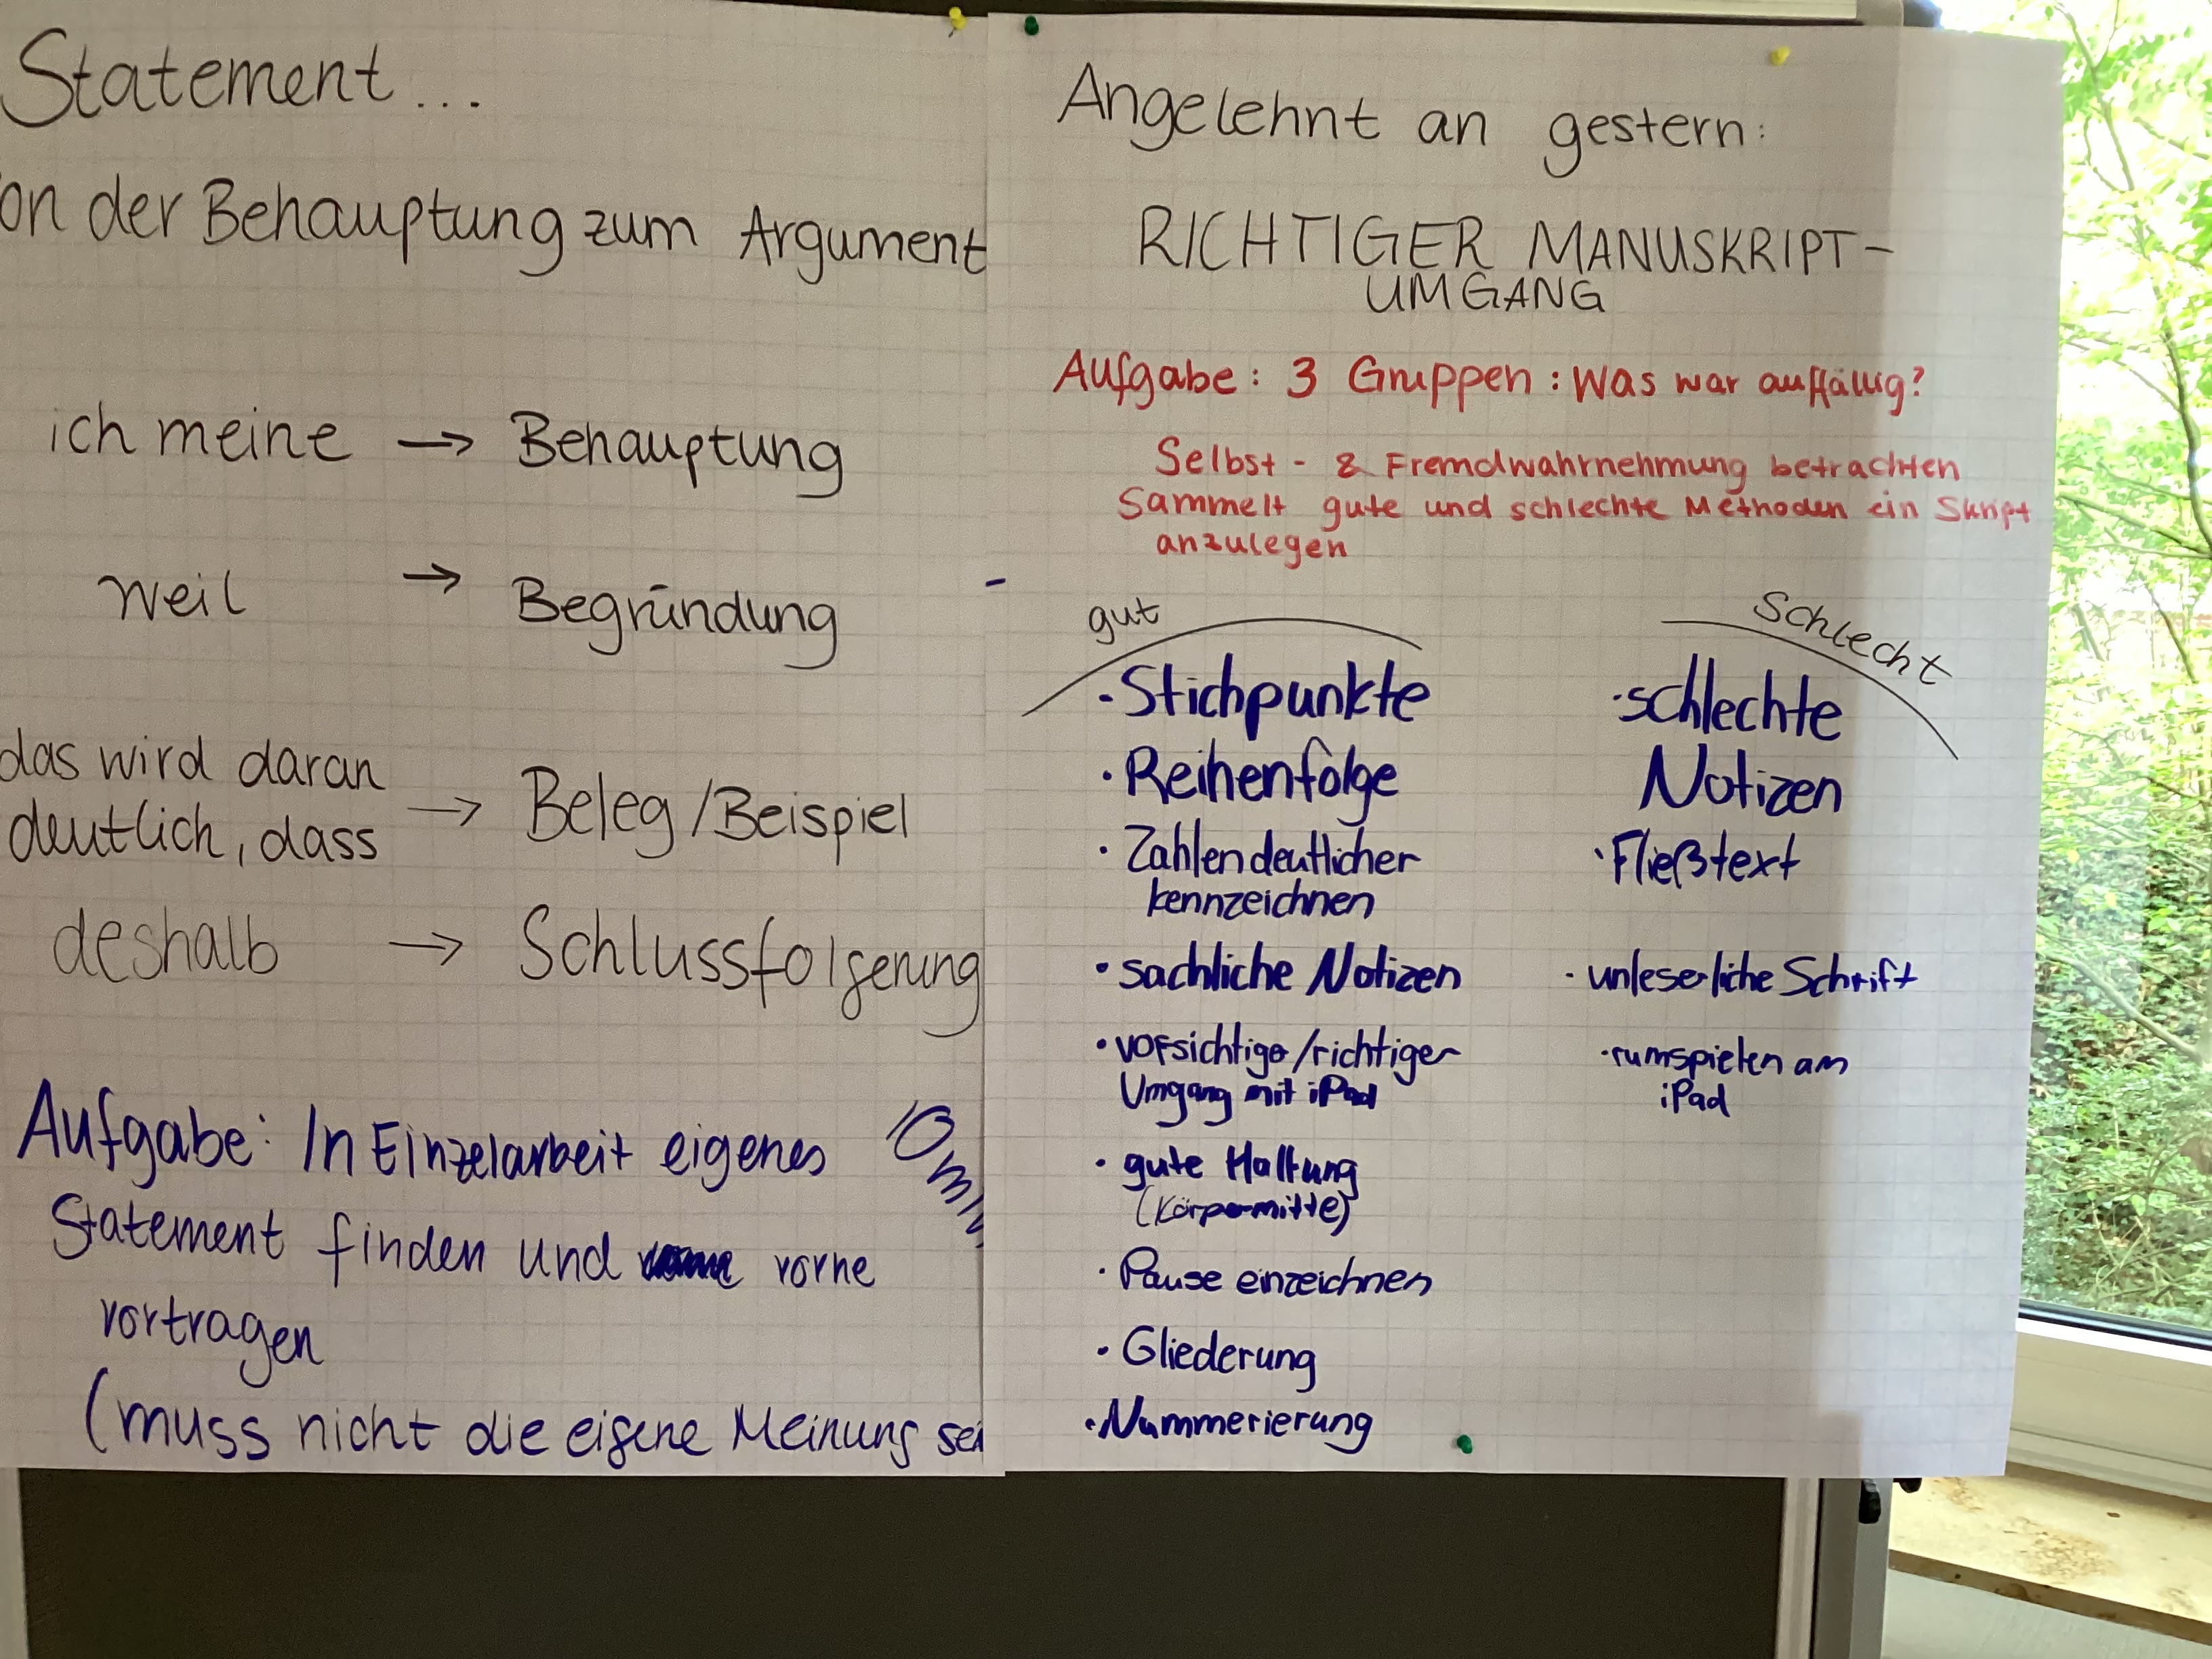 Statement...
on der Behauptung zum Argument
ich meine → Behauptung
weil → Begründung
das wird daran
deutlich, dass → Beleg/Beispiel
deshalb → Schlussfolgerung
Aufgabe: In Einzelarbeit eigenes
10 min
Statement finden und vorne
vortragen
(muss nicht die eigene Meinung sei
Angelehnt an gestern:
RICHTIGER MANUSKRIPT-
UMGANG
Aufgabe: 3 Gruppen: Was war auffällig?
Selbst- & Fremdwahrnehmung betrachten
Sammelt gute und schlechte Methoden ein Skript
anzulegen
gut
• Stichpunkte
• Reihenfolge
• Zahlen deutlicher
kennzeichnen
• sachliche Notizen
• vorsichtige/richtiger
Umgang mit iPad
• gute Haltung
(Körpermitte)
• Pause einzeichnen
• Gliederung
• Nummerierung
Schlecht
• schlechte
Notizen
• Fließtext
• unleserliche Schrift
• rumspielen am
iPad